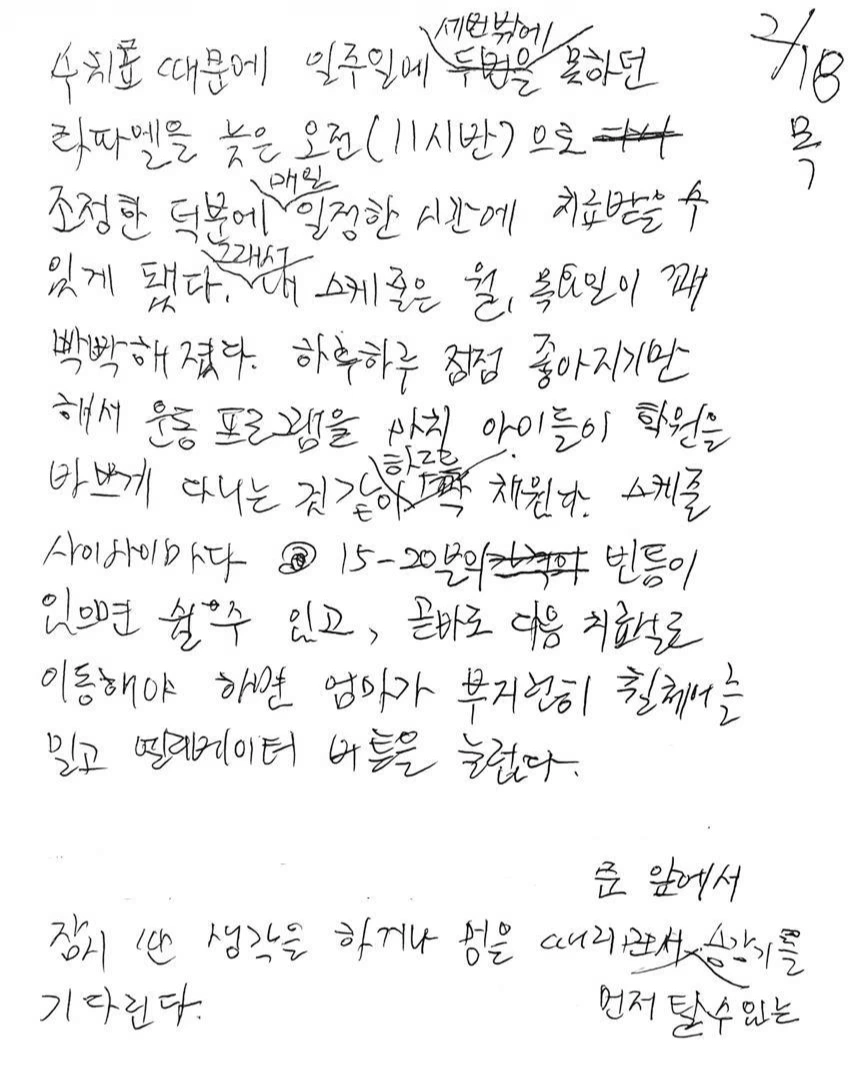 2/18
목
세번밖에
수치료 때문에 일주일에 두번을 못하던
라파엘을 늦은 오전(11시반)으로
매일
조정한 덕분에 일정한 시간에 치료받을 수
있게 됐다. 그래서 내 스케줄은 월, 목요일이 꽤
빡빡해졌다. 하루하루 점점 좋아지기만
해서 운동 프로그램을 마치 아이들이 학원을
바쁘게 다니는 것같이 하루를 꽉 채원다. 스케줄
사이사이마다 15-20분의 빈틈이
있으면 쉴 수 있고, 곧바로 다음 치료실로
이동해야 하면 엄마가 부지런히 휠체어를
밀고 엘레베이터 버튼을 눌렀다.
문 앞에서
잠시 딴 생각을 하거나 멍을 때리면서 승강기를
기다린다.
먼저 탈 수 있는